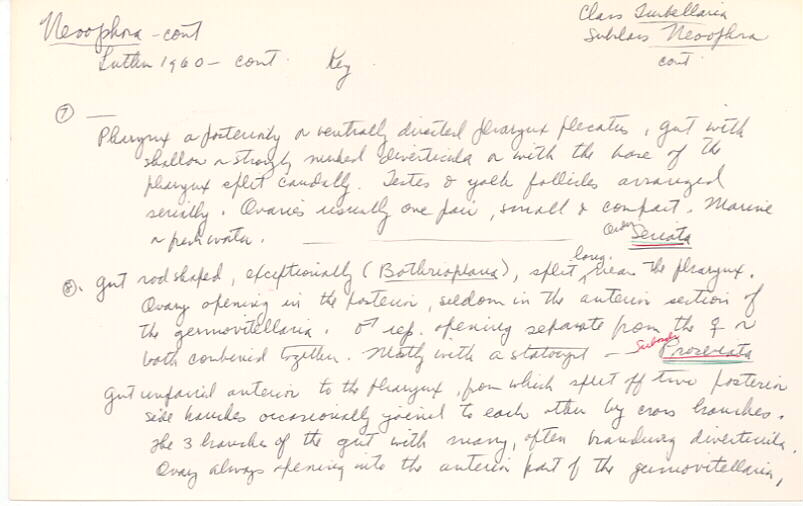 Neoophora - cont
Class Turbellaria
Subclass Neoophora
cont
Luther 1960 - cont. Key
⑦ —
Pharynx a posteriorly or ventrally directed pharynx plicatus, gut with
shallow or strongly marked diverticula or with the base of the
pharynx split caudally. Testes & yolk follicles arranged
serially. Ovaries usually one pair, small & compact. Marine
or fresh water. — Order Seriata
⑧. Gut rod shaped, exceptionally (Bothrioplana), split long. near the pharynx.
Ovary opening in the posterior, seldom in the anterior section of
the germovitellaria. ♂ rep. opening separate from the ♀ or
both combined together. Mostly with a statocyst — Suborder Proseriata
Gut unpaired anterior to the pharynx, from which split off two posterior
side branches occasionally joined to each other by cross branches.
The 3 branches of the gut with many, often branching diverticula.
Ovary always opening into the anterior part of the germovitellaria,